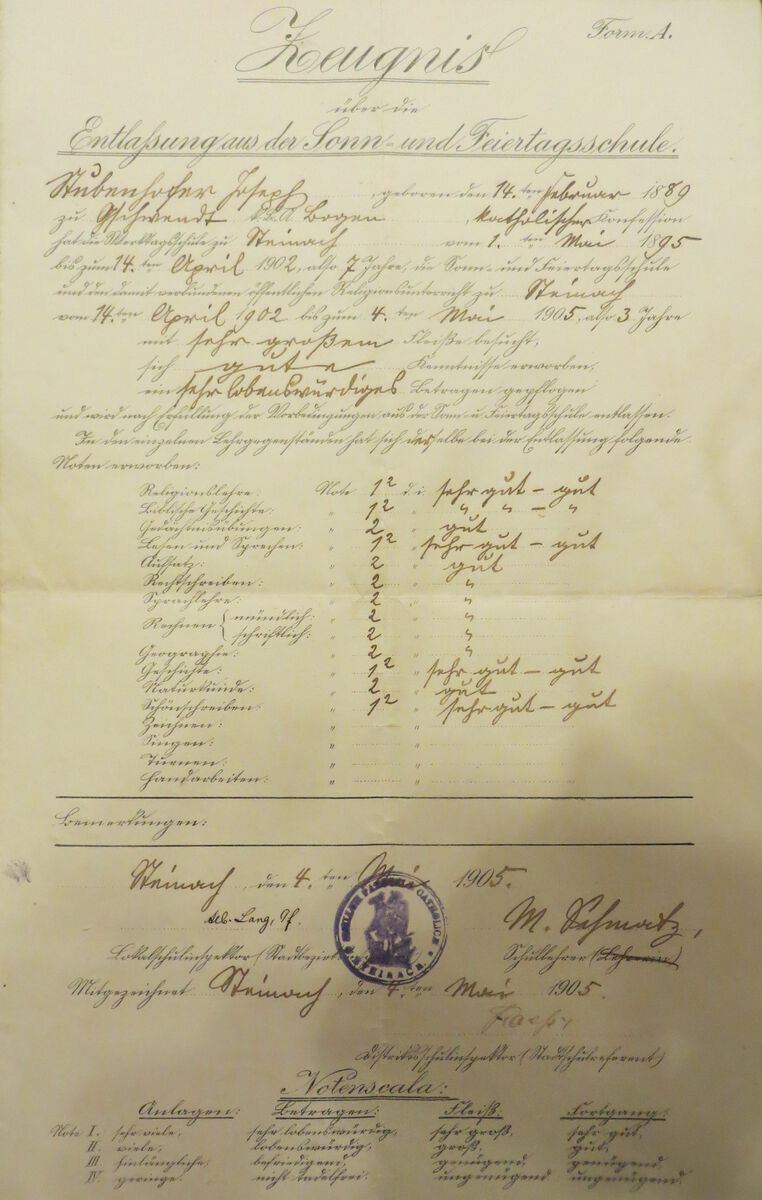 Form. A.
Zeugnis
über die
Entlaßung aus der Sonn- und Feiertagsschule.
Stubenhofer Joseph, geboren den 14. ten Februar 1889
zu Gschwendt k. b. A. Bogen, katholischer Konfession
hat die Werktagsschule zu Steinach vom 1. ten Mai 1895
bis zum 14. ten April 1902, also 7 Jahre, die Sonn- und Feiertagsschule
und den damit verbundenen öffentlichen Religionsunterricht zu Steinach
vom 14. ten April 1902 bis zum 4. ten Mai 1905, also 3 Jahre
mit sehr großem Fleiße besucht,
sich gute Kenntnisse erworben,
ein sehr lobenswürdiges Betragen gepflogen
und wird nach Erfüllung der Vorbedingungen aus der Sonn- u. Feiertagsschule entlassen.
In den einzelnen Lehrgegenständen hat sich derselbe bei der Entlassung folgende
Noten erworben:
Religionslehre: Note 1² d. i. sehr gut – gut
Biblische Geschichte: " 1² " " " – "
Gedächtnisübungen: " 2 " gut
Lesen und Sprechen: " 1² " sehr gut – gut
Aufsatz: " 2 " gut
Rechtschreiben: " 2 " "
Sprachlehre: " 2 " "
Rechnen { mündlich: " 2 " "
schriftlich: " 2 " "
Geographie: " 2 " "
Geschichte: " 1² " sehr gut – gut
Naturkunde: " 2 " gut
Schönschreiben: " 1² " sehr gut – gut
Zeichnen: " "
Singen: " "
Turnen: " "
Handarbeiten: " "
Bemerkungen:
Steinach, den 4. ten Mai 1905.
Lang, Pf. M. Schmatz,
Lokalschulinspektor (Stadtbezirk Schullehrer (Lehrerin)
STEINACH
Mitgezeichnet Steinach, den 4. ten Mai 1905.
Distriktsschulinspektor (Stadtschulreferent)
Notenscala:
Anlagen: Betragen: Fleiß: Fortgang:
Note I. sehr viele, sehr lobenswürdig, sehr groß, sehr gut,
II. viele, lobenswürdig, groß, gut,
III. hinlängliche, befriedigend, genügend, genügend
IV. geringe. nicht tadelfrei. ungenügend ungenügend.